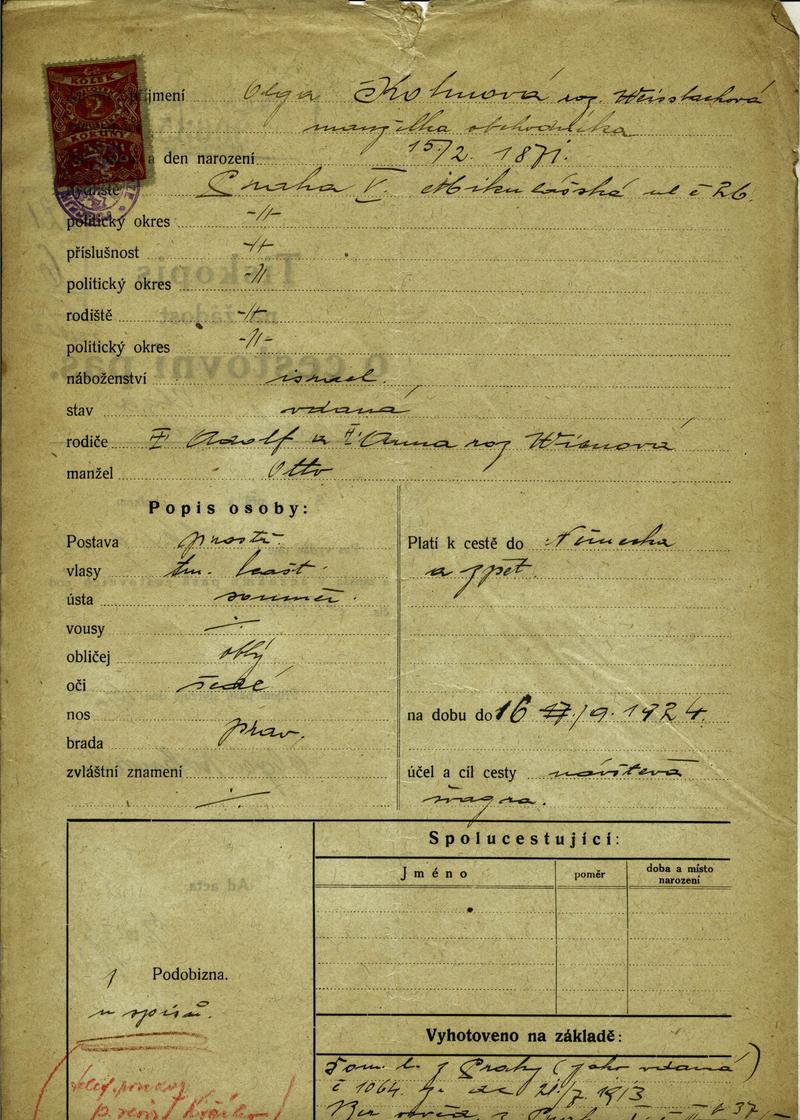 KOLEK
2
KORUNY
příjmení Olga Kohnová roz. Weissbachová
manželka obchodníka
a den narození 15/2. 1871.
bydliště Praha V. Mikulášská ul č 26.
politický okres -//-
příslušnost -//-
politický okres -//-
rodiště -//-
politický okres -//-
náboženství israel.
stav vdaná
rodiče † Adolf a † Anna roz
manžel Otto
Popis osoby:
Postava prostř.
vlasy tm. kašt.
ústa souměr.
vousy ÷
obličej oblý
oči šedé
nos
brada prav.
zvláštní znamení
÷
Platí k cestě do Německa
a zpět.
na dobu do 16 17./9. 1924.
účel a cíl cesty návštěva
švagra.
Spolucestující:
Jméno
poměr
doba a místo
narození
1 Podobizna.
u spisů.
Vyhotoveno na základě:
Dom. l. z Prahy (jako vdaná)
č 1064 21/7 1913